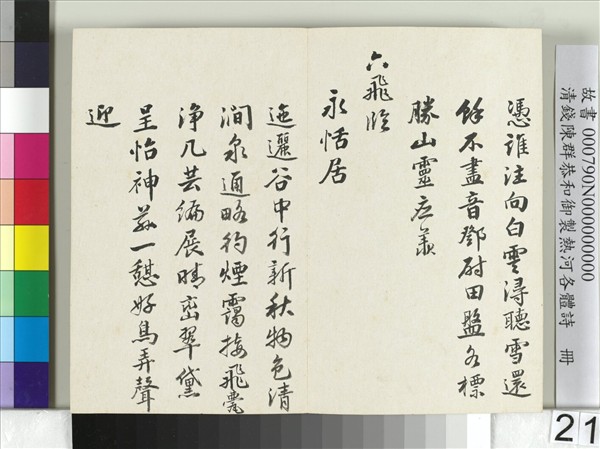 故書 000790N000000000
清錢陳群恭和御製熱河各體詩 冊
憑誰注向白雲潯聽雪還
餘不盡音鄧尉田盤各標
勝山靈应羨
六飛臨
永恬居
迤邐谷中行新秋物色清
澗泉通略彴煙靄接飛甍
淨几芸編展晴巒翠黛
呈怡神茲一憩好鳥弄聲
迎
21